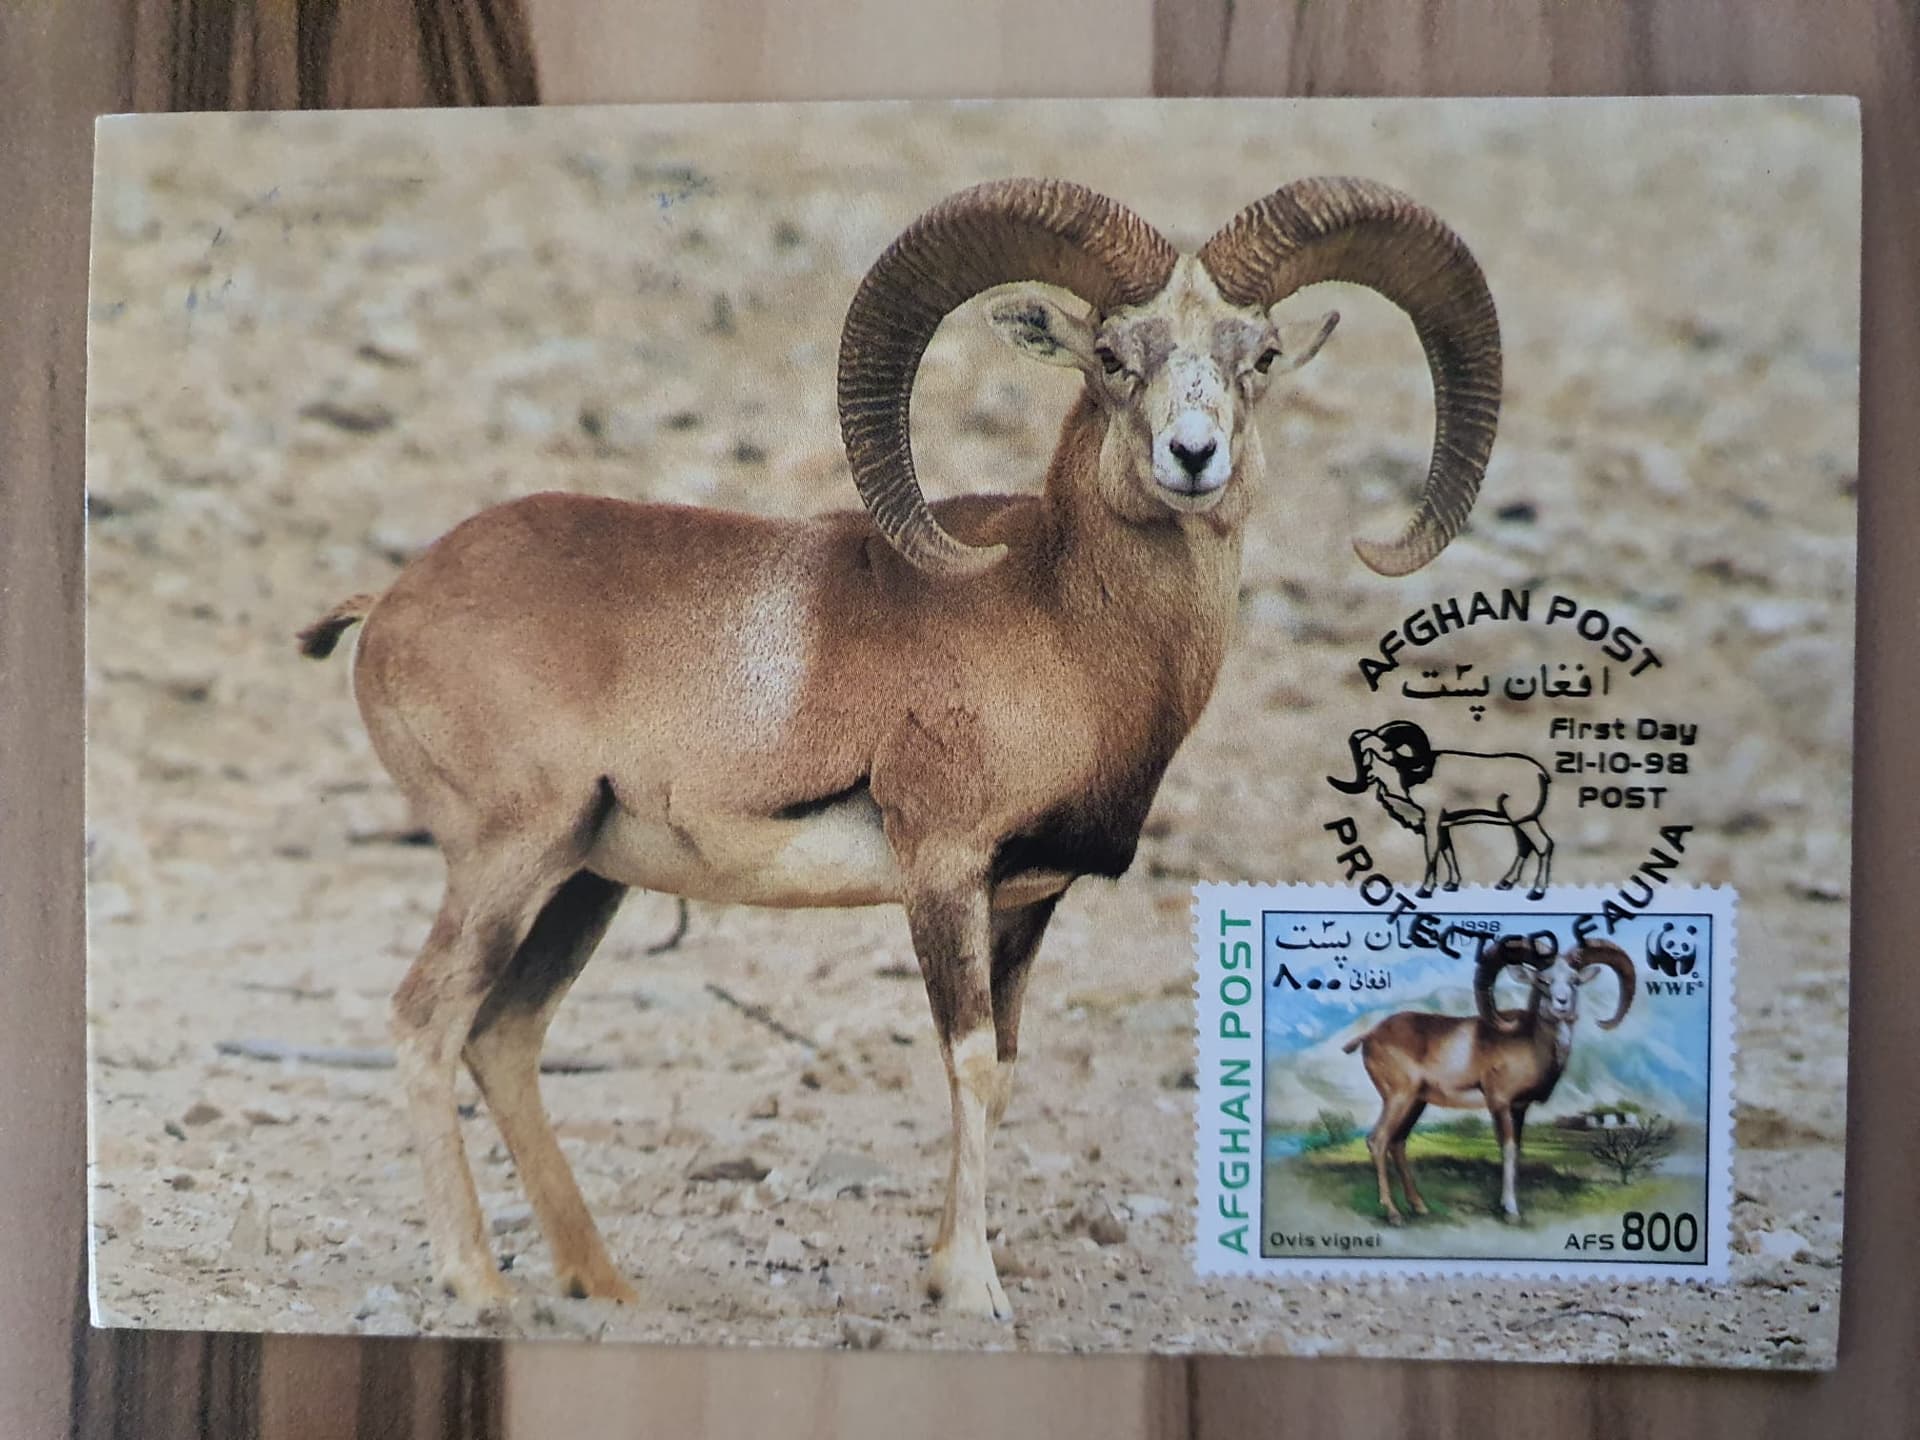 AFGHAN POST
افغان پست
First Day
21-10-98
POST
PROTECTED FAUNA
AFGHAN POST
افغان پست
1998
۸۰۰ افغانی
WWF
Ovis vignei
AFS 800